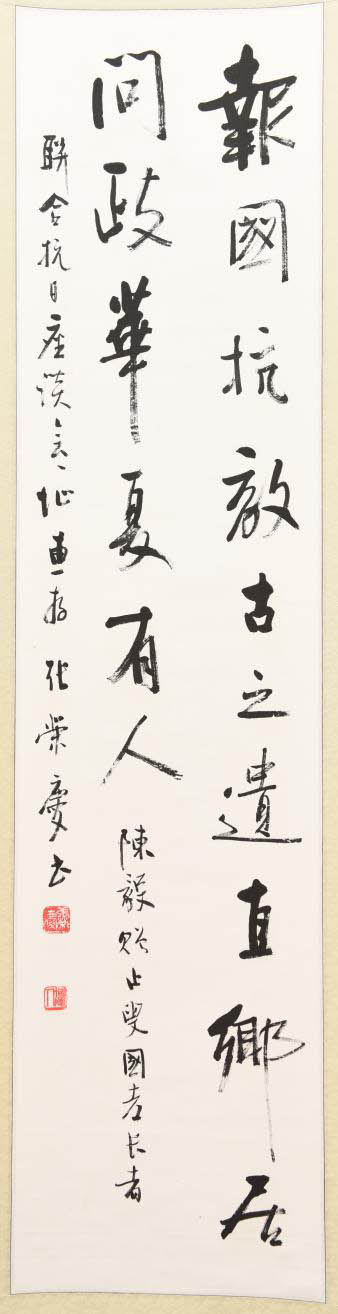 報國抗敵古之遺直鄉居
問政華夏有人
陳毅贈止叟國老長者
聯合抗日座談會址惠存 張榮慶書